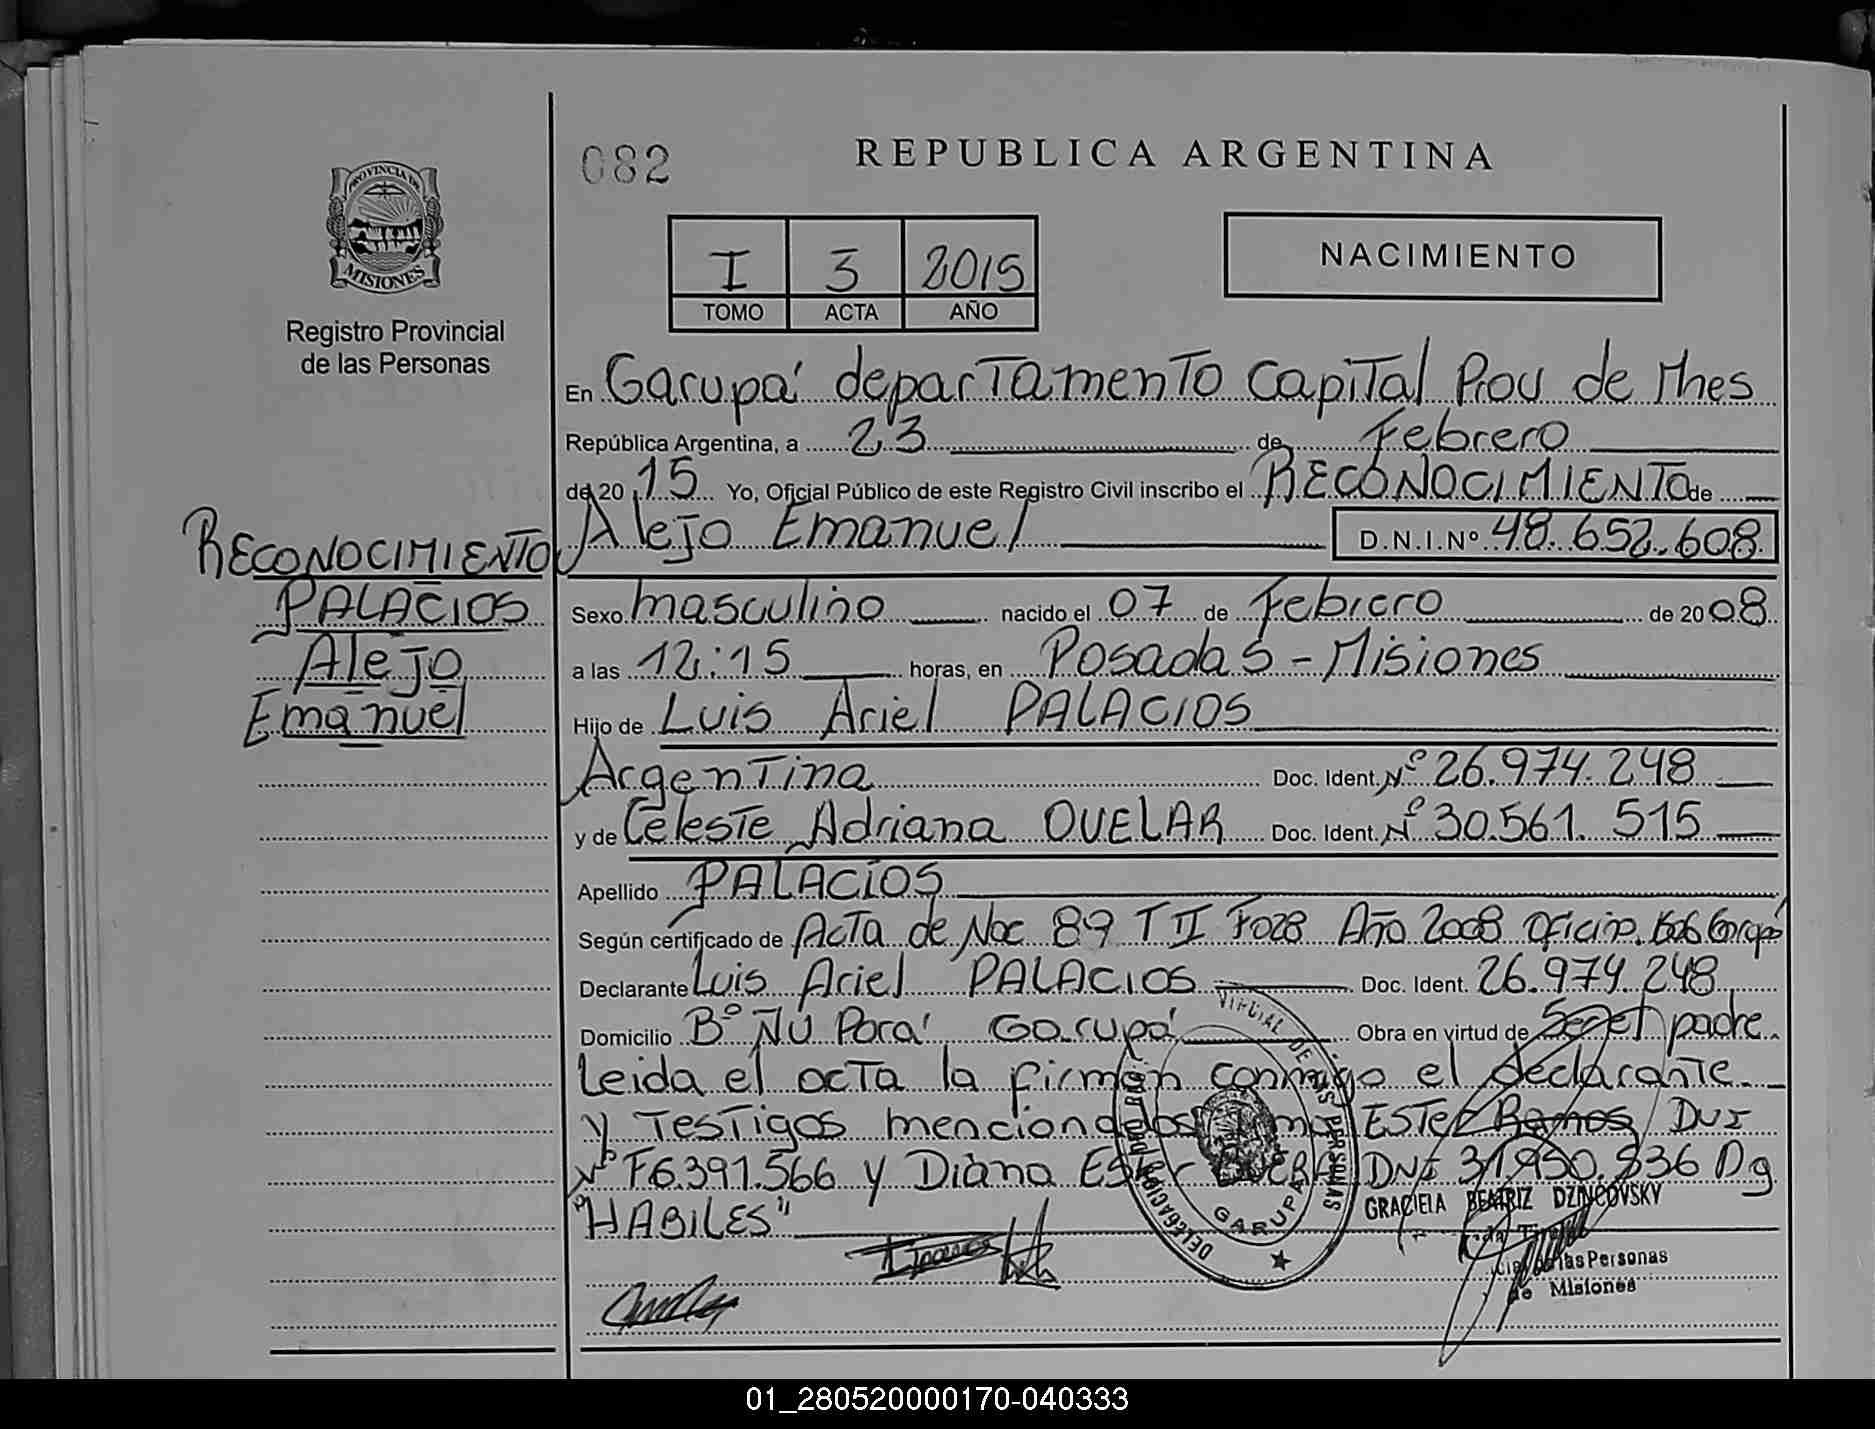 082
REPUBLICA ARGENTINA
PROVINCIA DE
MISIONES
Registro Provincial
de las Personas
I 3 2015
TOMO ACTA AÑO
NACIMIENTO
En Garupá departamento Capital Prov de Mnes
República Argentina, a 23 de Febrero
de 20 15 Yo, Oficial Público de este Registro Civil inscribo el RECONOCIMIENTO de
Alejo Emanuel D.N.I.Nº 48.652.608
RECONOCIMIENTO
PALACIOS
Alejo
Emanuel
Sexo masculino nacido el 07 de Febrero de 20 08
a las 12:15 horas, en Posadas - Misiones
Hijo de Luis Ariel PALACIOS
Argentina Doc. Ident. Nº 26.974.248
y de Celeste Adriana OVELAR Doc. Ident. Nº 30.561.515
Apellido PALACIOS
Según certificado de Acta de Nac 89 T II F028 Año 2008 Oficina Garupá
Declarante Luis Ariel PALACIOS Doc. Ident. 26.974.248
Domicilio Bº Ñu Porá Garupá Obra en virtud de Ser el padre.
Leida el acta la firman conmigo el declarante
y Testigos mencionados Ester Ramos DNI
Nº F6.391.566 y Diana Ester DNI 31.950.536 Dg
"HABILES"
DELEGACION DEL REG. PROVINCIAL DE LAS PERSONAS
GARUPA
GRACIELA BEATRIZ DZINCOVSKY
las Personas
de Misiones
01_280520000170-040333